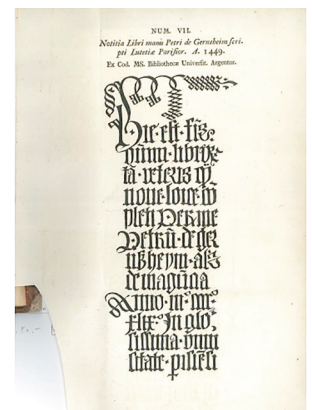 NUM. VII.
Notitia Libri manu Petri de Gernsheim scri-
pti Lutetiæ Parisior. A. 1449.
Ex Cod. MS. Bibliothecæ Universit. Argentor.
Hic·est·fis·o
mniū·libror·
tā·veteris·q̄
noue·loice·cō
pleti Per·me
Petrū·de·ger
nßheym·
de·magūtia
Anno·m°·
xlix° In glo
sissima·vniu
sitate·